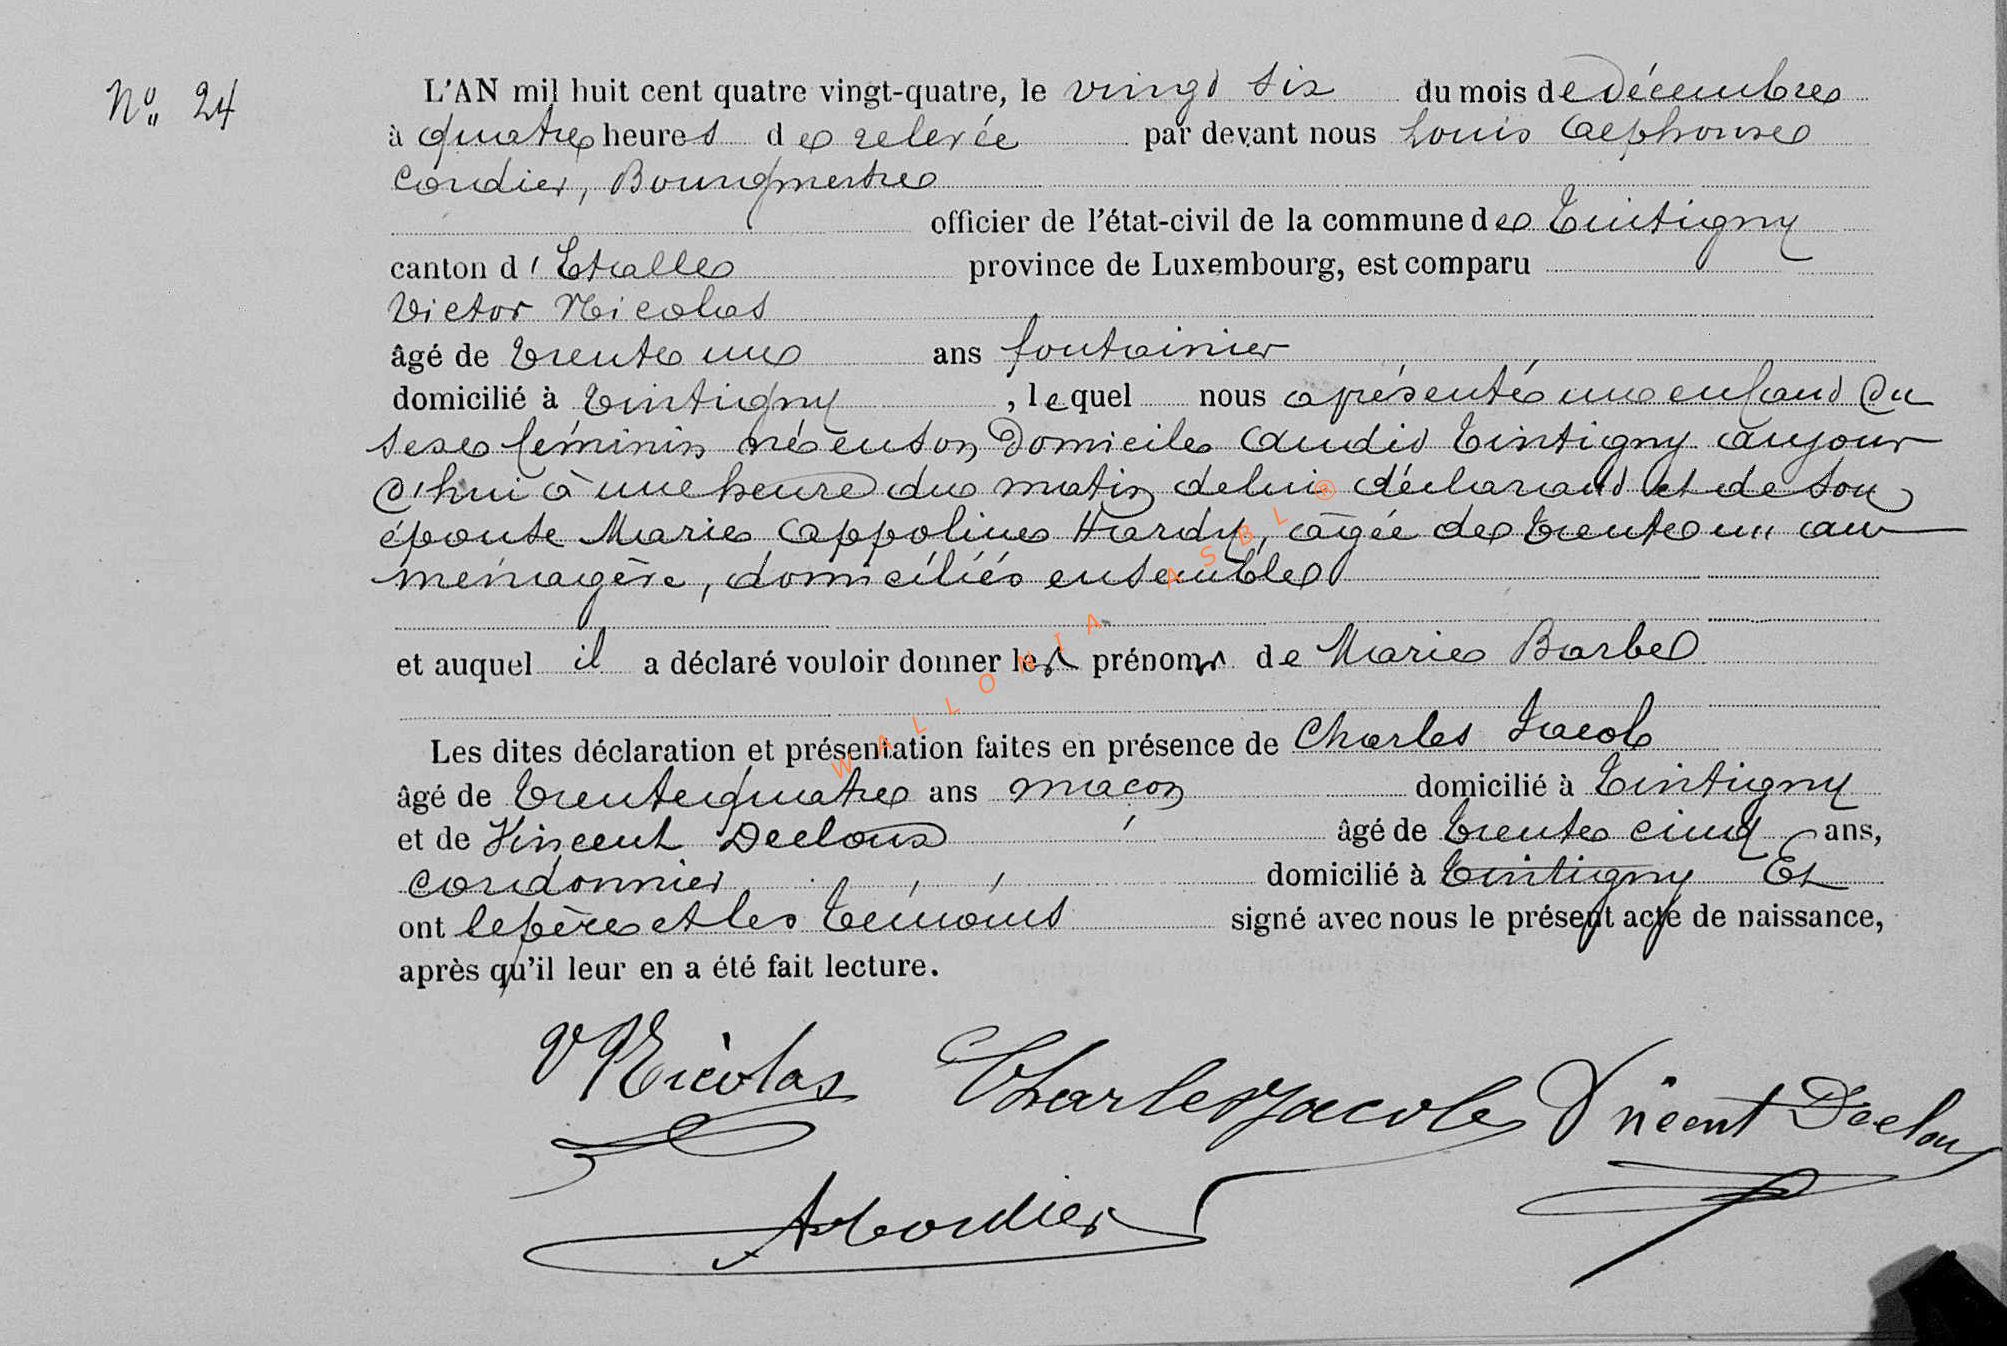 Nº 24
L'AN mil huit cent quatre vingt-quatre, le vingt six du mois de décembre
à quatre heures de relevée par devant nous Louis Alphonse
Cordier, Bourgmestre
officier de l'état-civil de la commune de Tintigny
canton d'Etalle province de Luxembourg, est comparu
Victor Nicolas
âgé de trente un ans fontainier
domicilié à Tintigny, lequel nous a présenté un enfant du
sexe féminin né en son domicile audit Tintigny aujour
d'hui à une heure du matin de lui déclarant et de son
épouse Marie Appoline Hardy, âgée de trente un ans
ménagère, domiciliés ensemble
et auquel il a déclaré vouloir donner les prénoms de Marie Barbe
Les dites déclaration et présentation faites en présence de Charles Jacob
âgé de trente quatre ans maçon domicilié à Tintigny
et de Vincent Declous âgé de trente cinq ans,
cordonnier domicilié à Tintigny Et
ont le père et les témoins signé avec nous le présent acte de naissance,
après qu'il leur en a été fait lecture.
V Nicolas Charles Jacob Vincent Declous
A Cordier
WALLONIA ASBL®